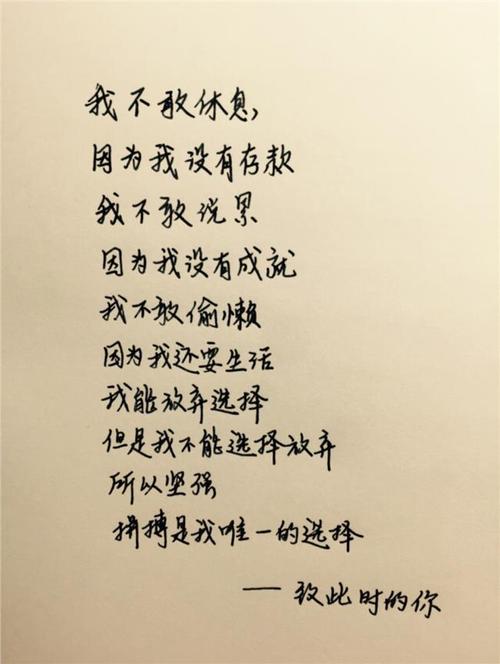 我不敢休息，
因为我没有存款
我不敢说累
因为我没有成就
我不敢偷懒
因为我还要生活
我能放弃选择
但是我不能选择放弃
所以坚强
拼搏是我唯一的选择
——致此时的你